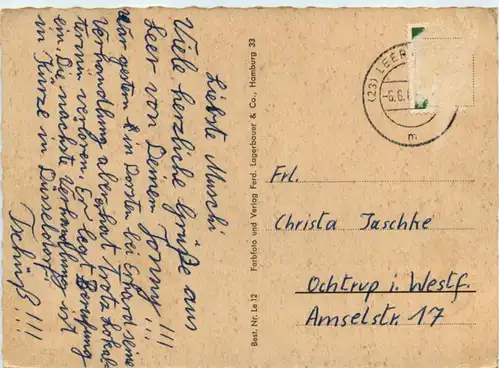 Liebste Muschi
Viele herzliche Grüße aus
Leer von Deinem Jonny!!!
War gestern in Dorsten bei Erhard seine
Verhandlung aber hat trotz Lokal-
termin verloren. Er legt Berufung
ein. Die nächste Verhandlung ist
in Kürze in Düsseldorf.
Tschüß!!!
Best. Nr. Le 12 Farbfoto und Verlag Ferd. Lagerbauer & Co., Hamburg 33
(23) LEER
-6.6.
m
Frl.
Christa Jaschke
Ochtrup i. Westf.
Amselstr. 17